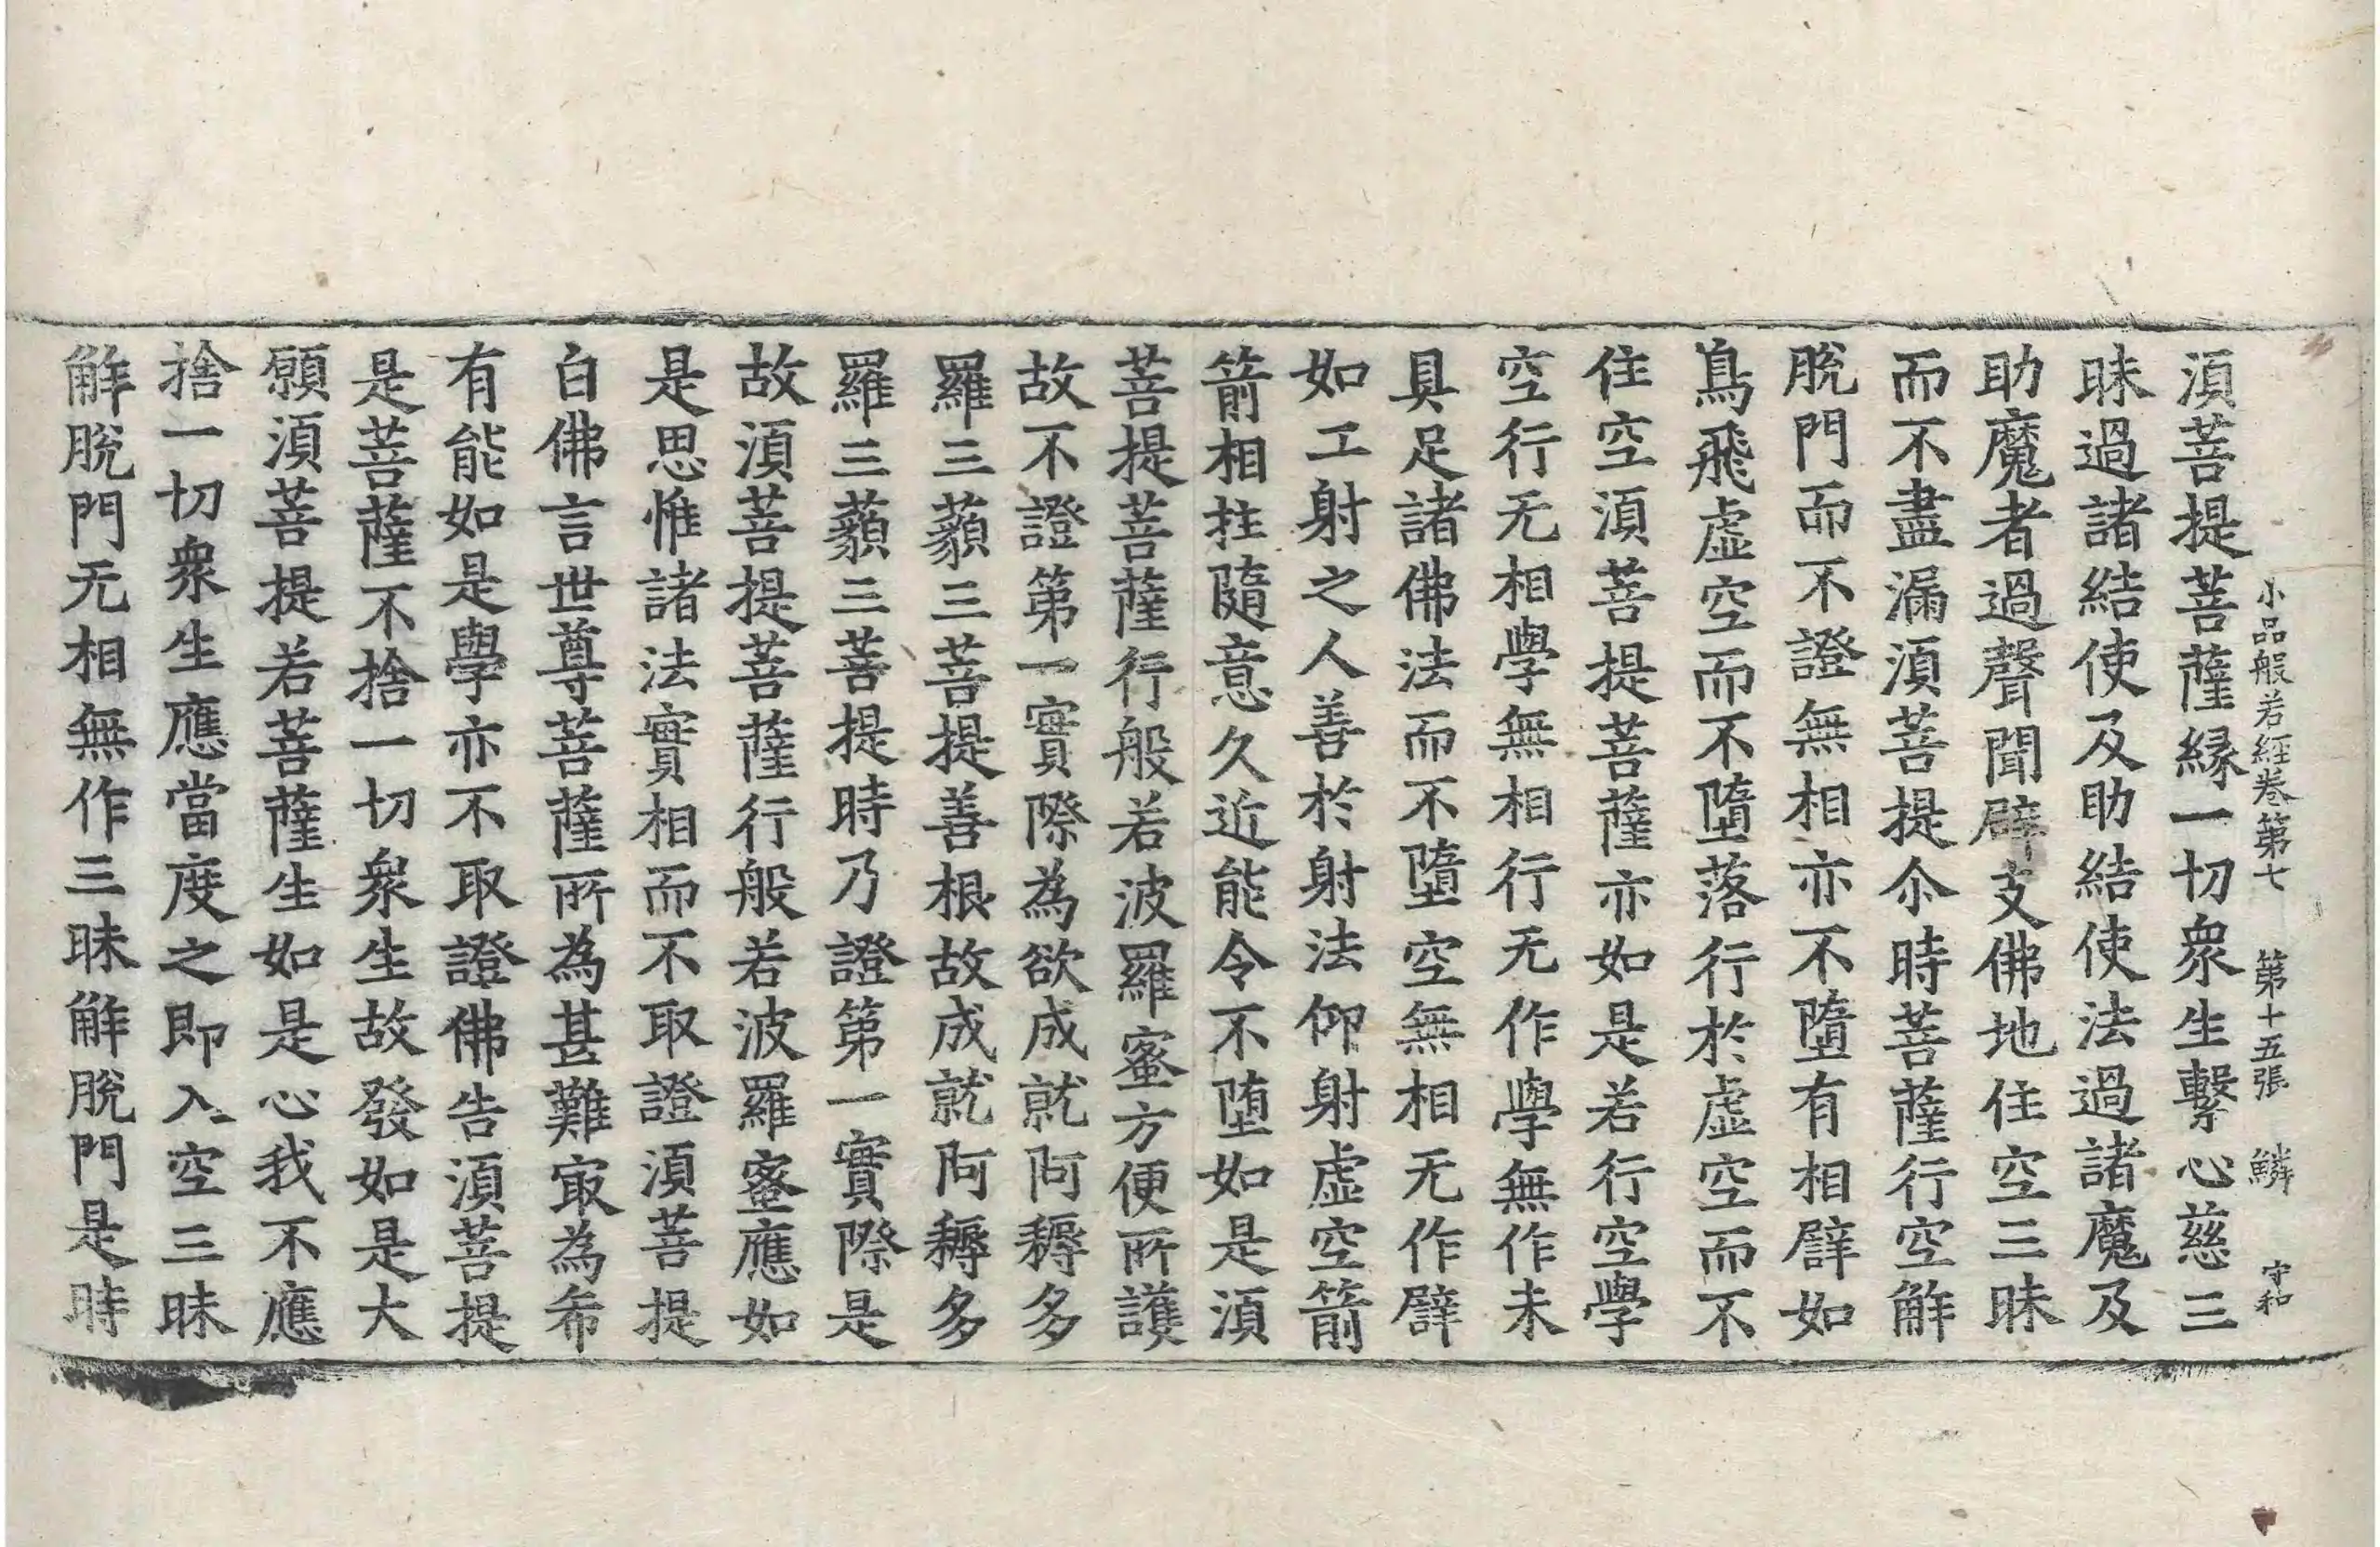 小品般若經卷第七 第十五張 鱗 守和
湏菩提菩薩縁一切衆生繫心慈三
昧過諸結使及助結使法過諸魔及
助魔者過聲聞辟支佛地住空三昧
而不盡漏湏菩提尒時菩薩行空解
脫門而不證無相亦不墮有相譬如
鳥飛虛空而不墮落行於虛空而不
住空湏菩提菩薩亦如是若行空學
空行无相學無相行无作學無作未
具足諸佛法而不墮空無相无作譬
如工射之人善於射法仰射虛空箭
箭相拄隨意久近能令不堕如是湏
菩提菩薩行般若波羅蜜方便所護
故不證第一實際為欲成就阿耨多
羅三藐三菩提善根故成就阿耨多
羅三藐三菩提時乃證第一實際是
故湏菩提菩薩行般若波羅蜜應如
是思惟諸法實相而不取證湏菩提
白佛言世尊菩薩所為甚難㝡為希
有能如是學亦不取證佛告湏菩提
是菩薩不捨一切衆生故發如是大
願湏菩提若菩薩生如是心我不應
捨一切衆生應當度之即入空三昧
解脫門无相無作三昧解脫門是時